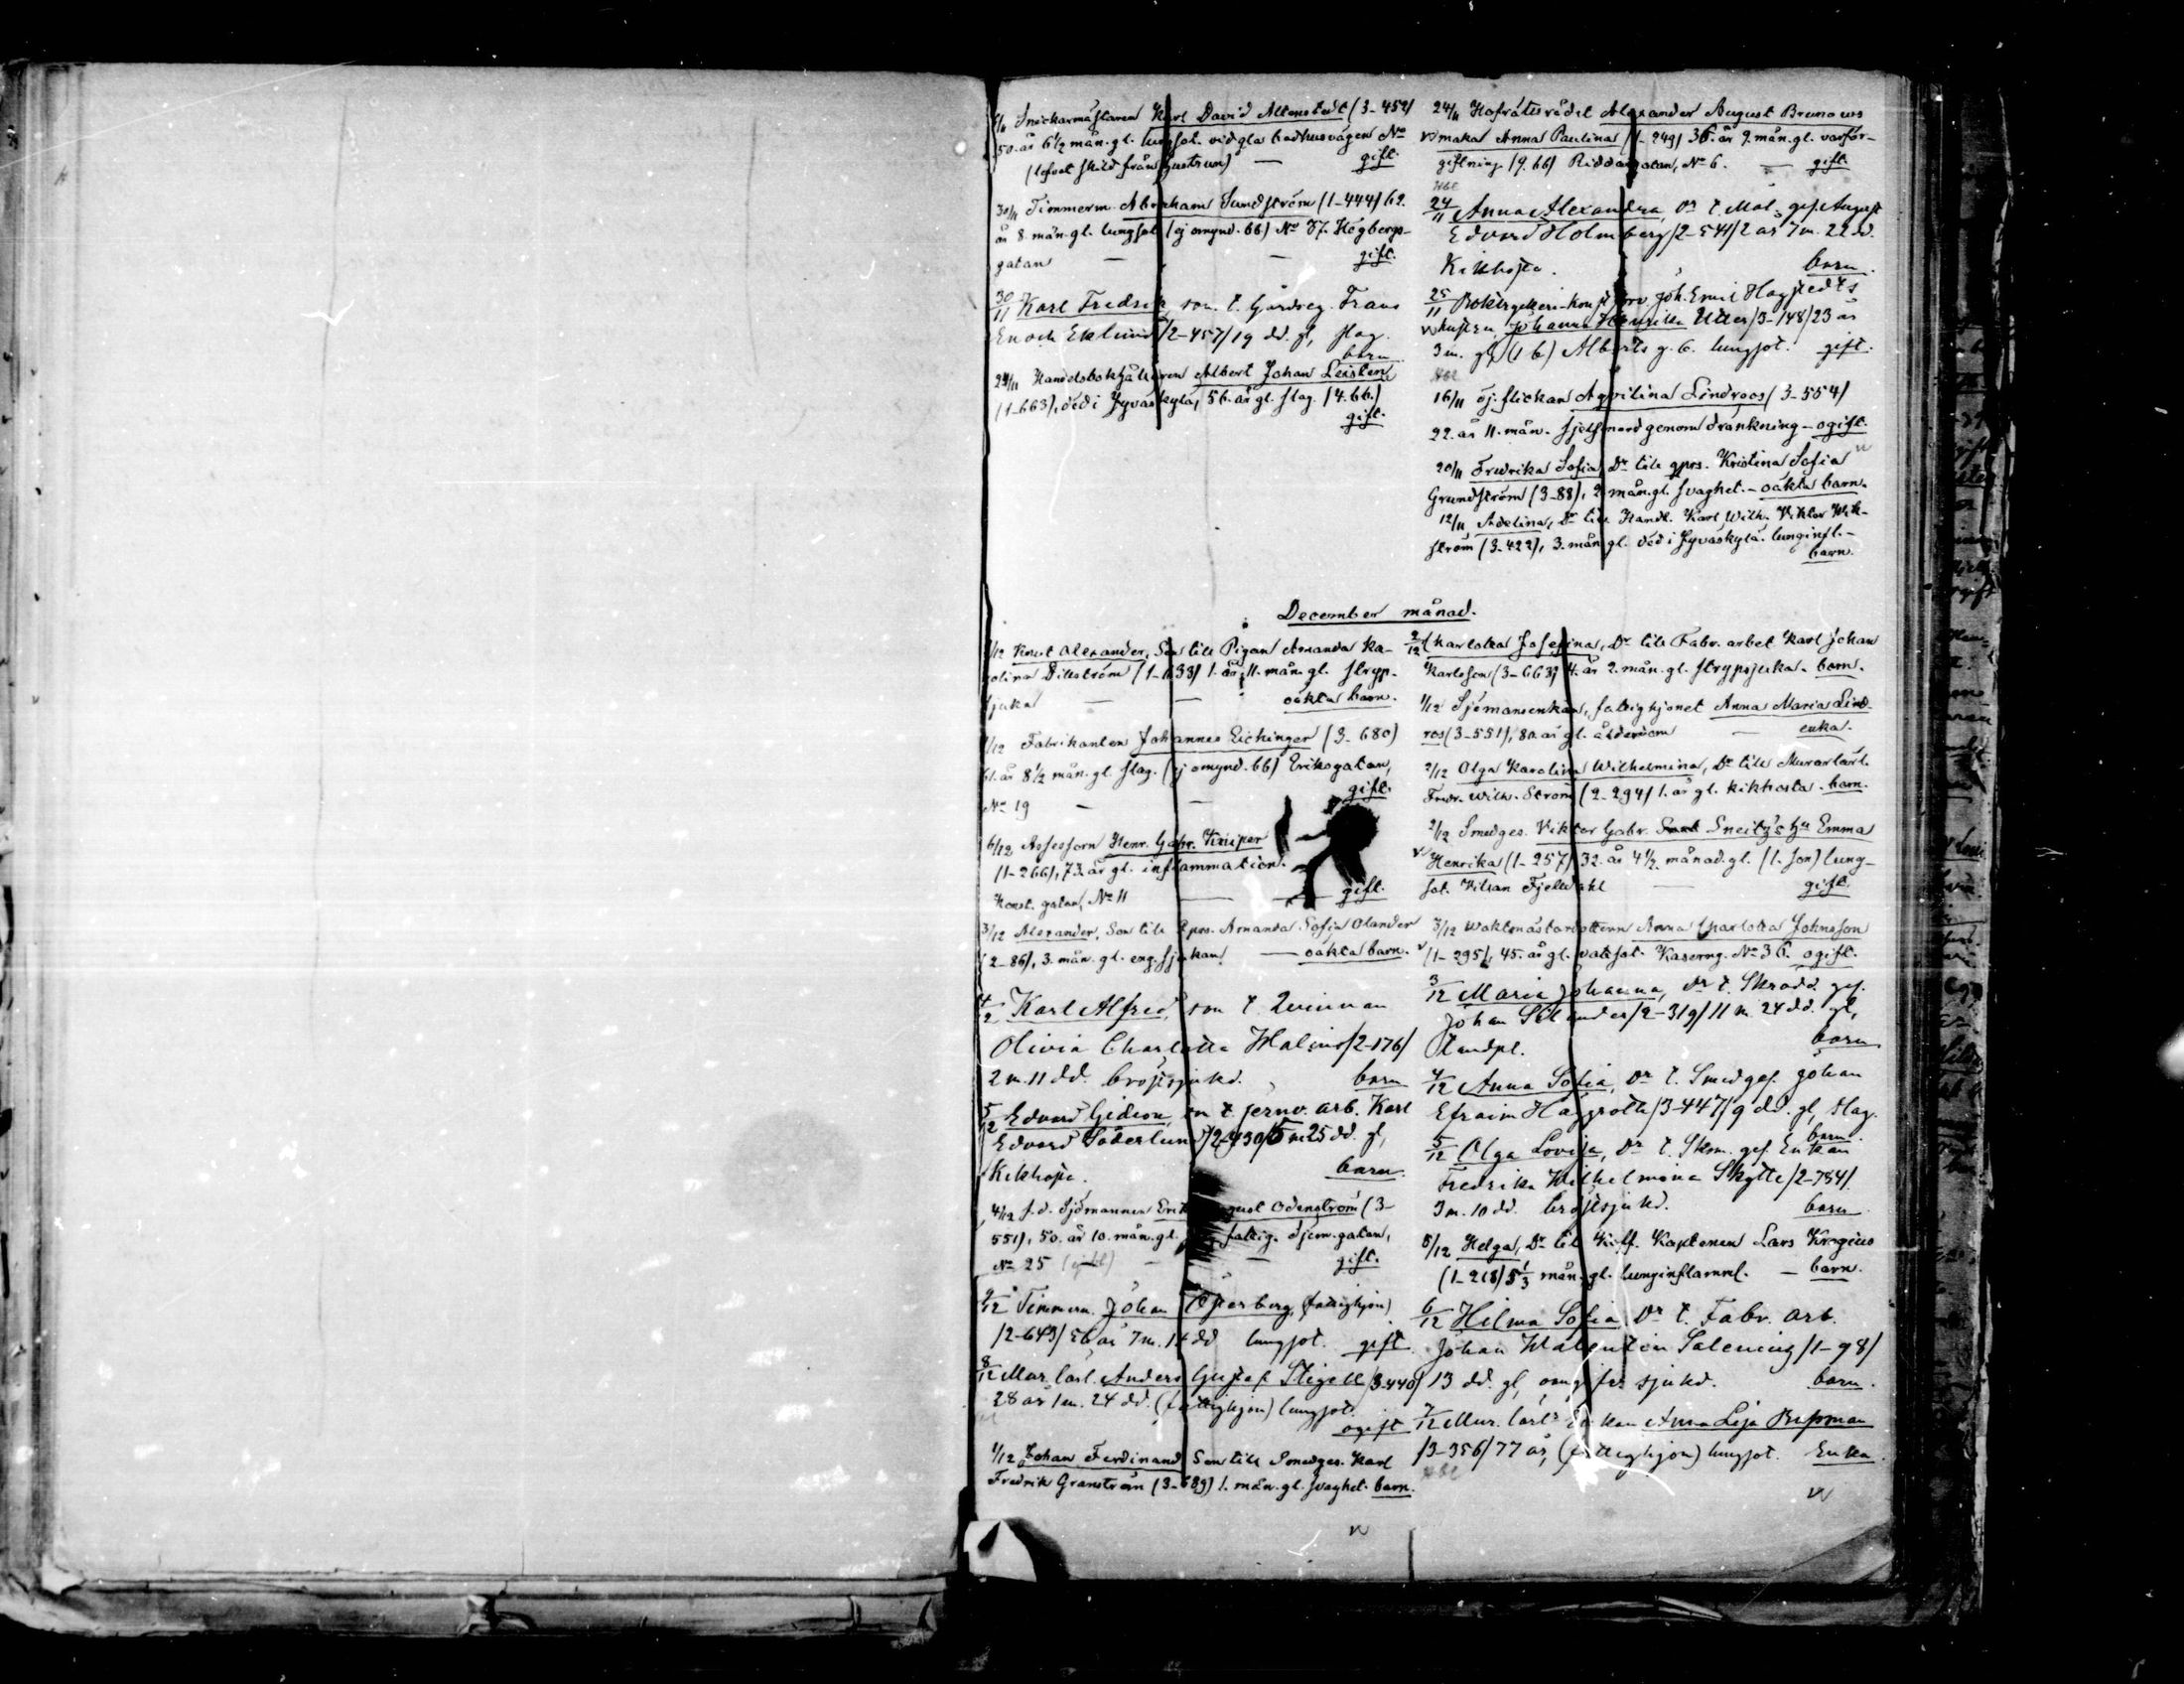 Snickarmästaren Karl David Altenstedt (3-452)
50. år 6½ mån. gl. lungsot. vid gla badhusvägen No
(lefvat skild från hustrun) — gift.
30/11 Timmerm. Abraham Sundström (1-444) 62.
år 8. mån. gl. lungsot (ej omynd. 66) No 37. Högbergs-
gatan — — gift.
30/11 Karl Fredrik, son t. Gårdseg. Frans
Enoch Eklund /2-457/ 19 dd. gl, slag.
barn
29/11 Handelsbokhållaren Albert Johan Leisten
(1-663), död i Jyväskylä, 56. år gl. slag. (4. 66.)
gift.
24/11 Hofrättsrådet Alexander August Brunous
maka Anna Paulina (1-249) 36. år 9. mån. gl. varför-
giftning (9. 66) Riddaregatan, No 6. — gift.
24/11 Anna Alexandra, Dr t. Mål. ges. August
Edvard Holmberg /2-541/ 2 år 7 m. 22 dd.
Kikhosta. barn.
25/11 Boktryckeri-konstförv. Joh. Emil Hagstedts
hustru Johanna Henrika Utter /3-148/ 23 år
3 m. gl, (1 b) Alberts g. 6. lungsot. gift.
16/11 Sj. flickan Aqvilina Lindroos (3-554)
22. år 11. mån. sjelfmord genom dränkning — ogift.
20/11 Fredrika Sofia, Dr till qprs. Kristina Sofia
Grundström (3-88), 2 mån. gl. svaghet. — oäkta barn.
12/11 Adelina, Dr till Handl. Karl Wilh. Viktor Wik-
ström (3-422), 3. mån. gl. död i Jyväskylä. lunginfl. —
barn.
December månad.
/12 Knut Alexander, Son till Pigan Amanda Ka-
rolina Dillström (1-1133) 1. år, 11. mån. gl. stryp-
sjuka — — oäkta barn.
/12 Fabrikanten Johannes Eichinger (3-680)
61. år 8½ mån. gl. slag. (ej omynd. 66) Eriksgatan,
No 19 — — gift.
6/12 Assessorn Henr. Gabr. Krüper
(1-266), 73. år gl. inflammation.
Konst. gatan, No 11 — — gift.
3/12 Alexander, Son till Qprs. Amanda Sofia Olander
(2-86), 3. mån. gl. eng. sjukan — oäkta barn.
4/12 Karl Alfred, son t. Qvinnan
Olivia Charlotta Malmi /2-176/
2 m. 11 dd. bröstsjukd. barn
5/12 Edvard Gideon, son t. jernv. arb. Karl
Edvard Söderlund /2-430/ 5 m 25 dd. gl,
Kikhosta. barn.
4/12 f. d. Sjömannen Erik August Odenström (3-
551), 50. år 10. mån. gl. fattig. Djurn. gatan,
No 25 — — gift.
9/12 Timmerm. Johan Österberg (fattighjon)
/2-643/ 56 år 7 m. 14 dd lungsot. gift.
8/12 Mur. lärl. Anders Gustaf Stigell /3-440/
28 år 1 m. 24 dd. (fattighjon) lungsot.
ogift
1/12 Johan Ferdinand Son till Smedges. Karl
Fredrik Granström (3-689) 1. mån. gl. svaghet. barn.
2/12 Charlotta Josefina, Dr till Fabr. arbet Karl Johan
Karlsson (3-663) 4. år 2. mån. gl. strypsjuka. barn.
1/12 Sjömansenkan, fattighjonet Anna Maria Lind-
ros (3-551), 80. år gl. ålderdom — enka.
2/12 Olga Karolina Wilhelmina, Dr till Murarlärl.
Fredr. Wilh. Ström (2-294) 1. år gl. kikhosta. barn.
2/12 Smedges. Viktor Gabr. Sneitz's hu Emma
Henrika (1-257) 32. år 4½ månad. gl. (1. son) lung-
sot. Villan Fjelldahl — gift.
3/12 Waktmästardottern Anna Charlotta Johnsson
(1-295), 45. år gl. vattsot. Kaserng. No 36. ogift.
3/12 Maria Johanna, Dr t. Skrädd. ges.
Johan Selander /2-319/ 11 m. 24 dd. gl,
tandpl. barn
4/12 Anna Sofia, Dr t. Smedges. Johan
Efraim Haggroth /3-447/ 9 dd. gl, slag.
barn.
5/12 Olga Lovisa, Dr t. Skom. ges. Enkan
Fredrika Wilhelmina Skytte /2-754/
3 m. 10 dd. bröstsjukd. barn
5/12 Helga, Dr till Koff. Kaptenen Lars Krogius
(1-218) 5⅓ mån. gl. lunginflamml. — barn.
6/12 Hilma Sofia Dr t. Fabr. arb.
Johan Walentin Salenius /1-98/
13 dd. gl, sjukd. barn.
7/12 Mur. lärls Enkan Anna Lisa Bessman
/3-356/ 77 år, (fattighjon) lungsot. Enka.